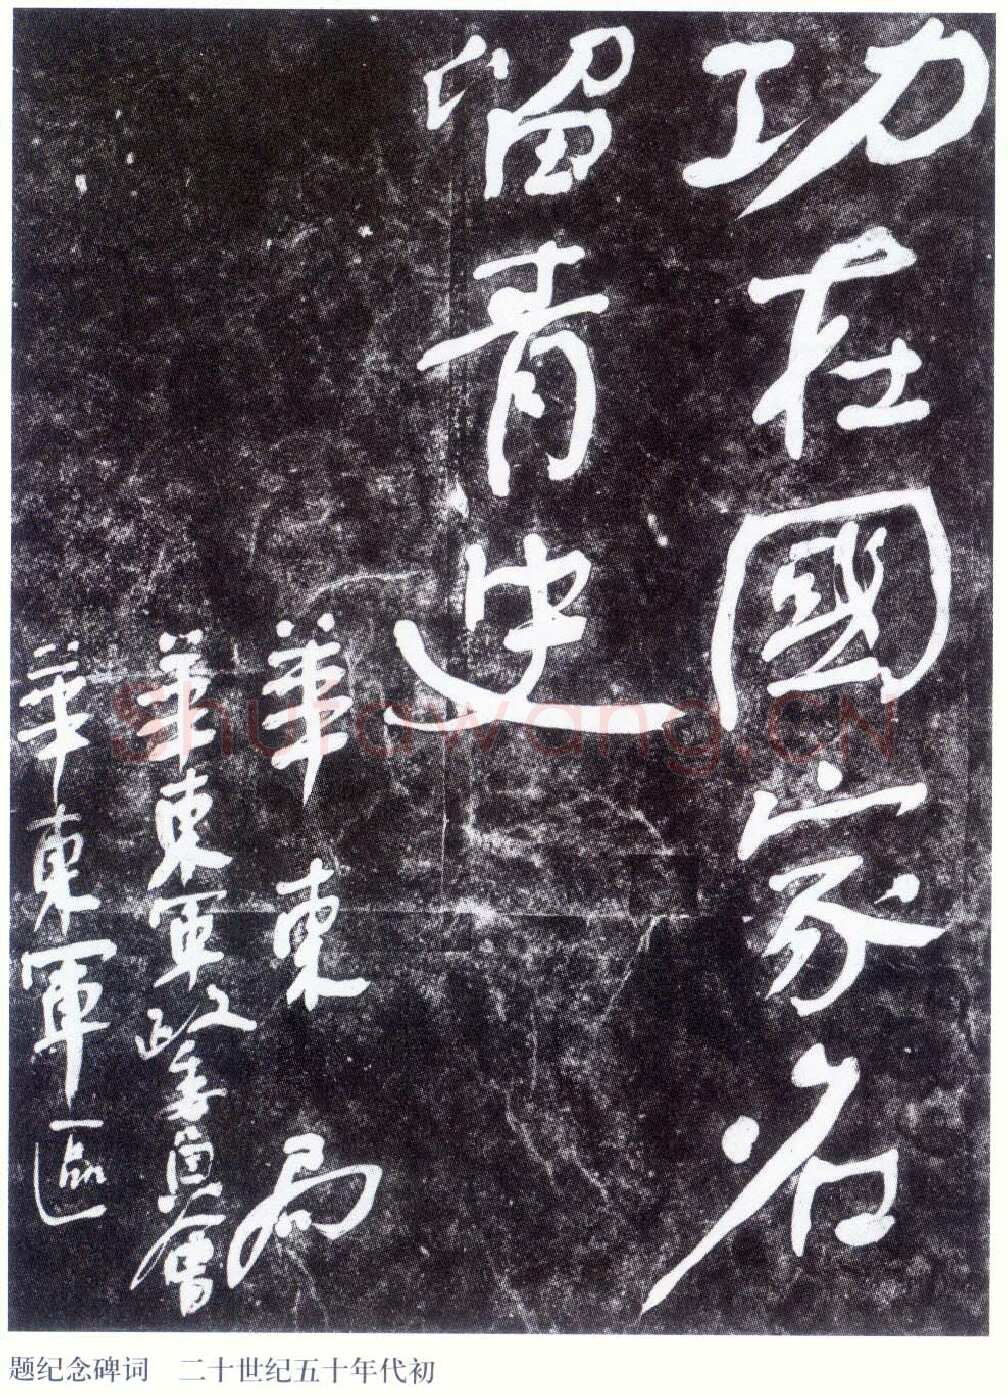 功在國家名
留青史
華東局
華東軍政委員會
華東軍區
shufawang.cn
题纪念碑词 二十世纪五十年代初